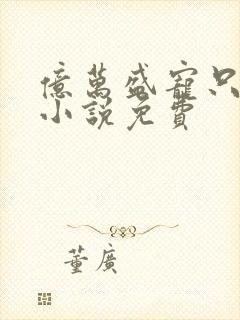 億萬盛寵只
小說免費
董廣